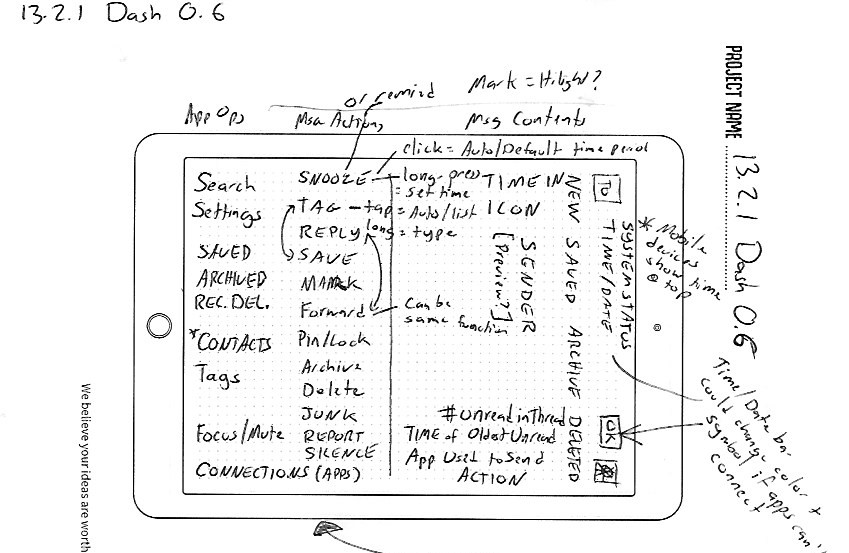 13.2.1 Dash 0.6
or remind
Mark = Hilight?
App Ops
Msg Actions
Msg Contents
click = Auto/Default time period
Search
Settings
SAVED
ARCHIVED
REC. DEL.
*CONTACTS
Tags
Focus/Mute
CONNECTIONS (APPS)
SNOOZE
long-press
= set time
TAG - tap = Auto/list
REPLY long = type
SAVE
MARK
Forward
Can be
same function
Pin/Lock
Archive
Delete
JUNK
REPORT
SILENCE
TIME IN
ICON
SENDER
[Preview?]
#Unread in Thread
TIME of Oldest Unread
App Used to Send
ACTION
NEW SAVED ARCHIVE DELETED
TIME/DATE
SYSTEM STATUS
OK
* Mobile
devices
show time
@ top
Time/Date bar
could change color +
symbol if apps can't
connect
PROJECT NAME 13.2.1 Dash 0.6
We believe your ideas are worth